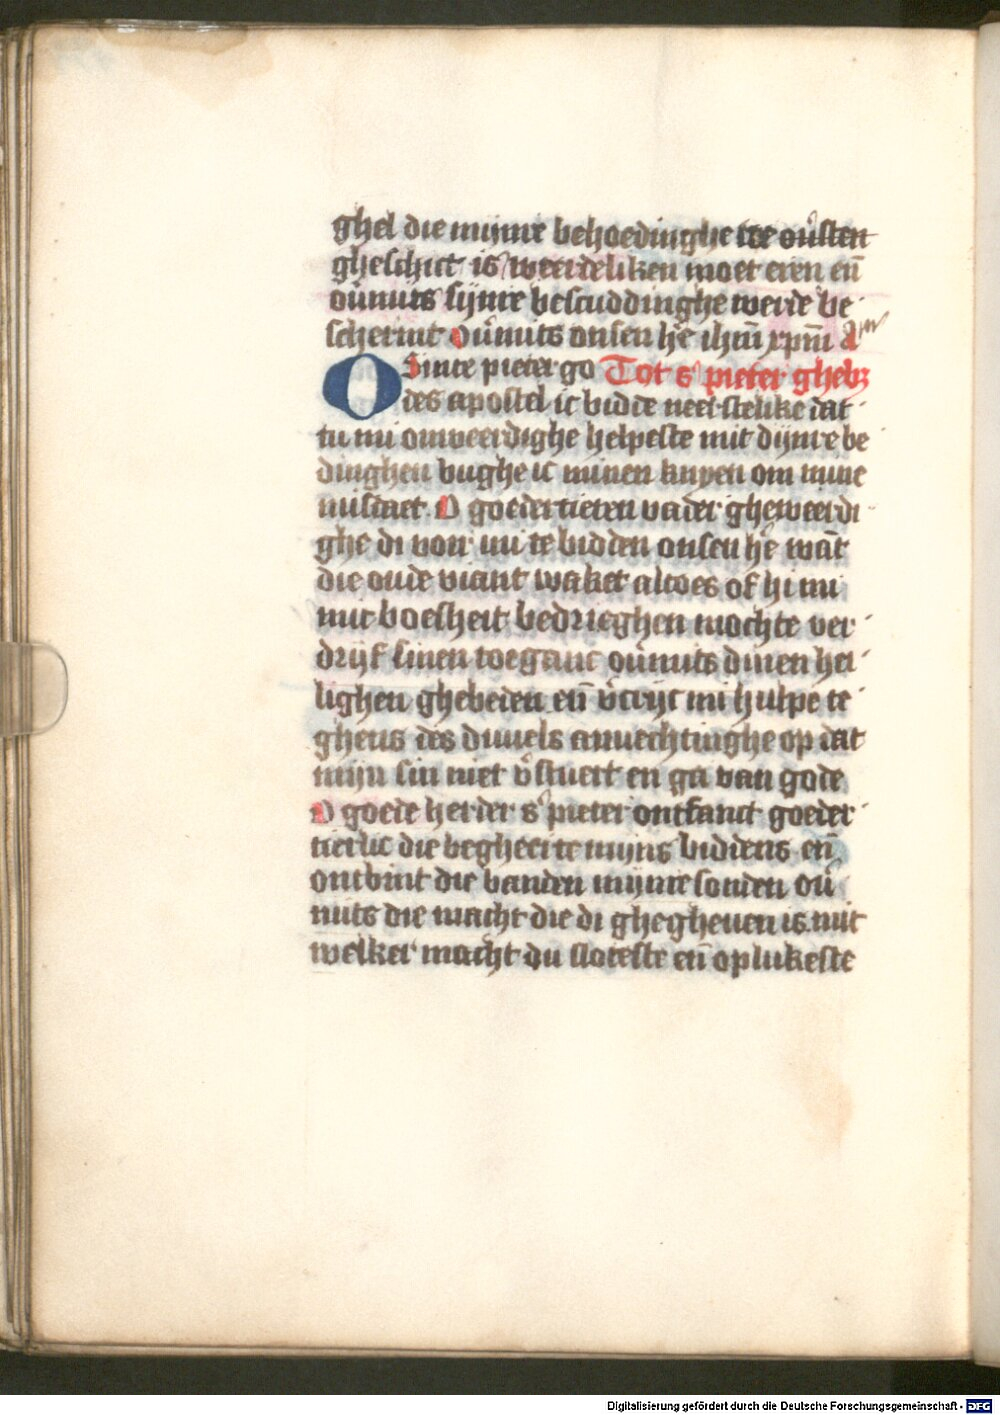 ghel die mijnre behoedinghe tte ou̅sten
gheschict is weerdeliken moet eren en̅
ou̅mits sijnre bescuddinghe werde be
schermt ou̅mits onsen he̅ ihm̅ xpm̅ am̅
O Sinte pieter go Tot s' pieter ghebʒ
des apostel ic bidde neerstelike dat
tu mi onweerdighe helpeste mit dijnre be
dinghen bughe ic minen knyen om mine
misdaet O goedertieren vader gheweerdi
ghe di voir mi te bidden onsen he̅ wa̅t
die oude viant waket altoes of hi mi
mit boesheit bedrieghen mochte ver
drijf sinen toeganc ou̅mits dinen hei
lighen ghebeden en̅ v̅crijt mi hulpe te
ghens des duuels anuechtinghe op dat
mijn sin niet v̅stuert en ga van gode
O goede herder s' pieter ontfanct goeder
tierlic die begheerte mijns biddens en̅
ontbint die banden mijnre sonden ou̅
mits die macht die di ghegheuen is mit
welker macht du sloteste en̅ oplukeste
Digitalisierung gefördert durch die Deutsche Forschungsgemeinschaft - DFG